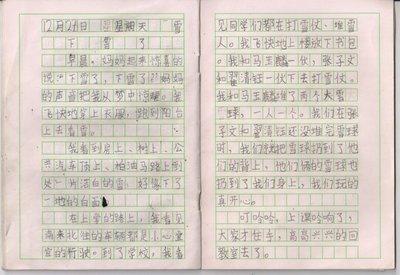 12月21日 星期天 雪
下雪了
早晨，妈妈起来惊喜的
说：“下雪了，下雪了！”妈妈
的声音把我从梦中惊醒。我
飞快地穿上衣服，跑到阳台
上去看雪。
我看到房上、树上、公
共汽车顶上、柏油马路上到
处一片洁白的雪，好像下了
一地的白面
在上学的路上，我看见
南来北往的车辆都是小心宜
宜的行驶。到了学校，我看
见同学们都在打雪仗、堆雪
人。我飞快地上楼放下书包
。我和王麒一伙，张子文
和翟清钰一伙下去打雪仗。
我和马王麟堆了两个大雪
球，一人一个。我们在张
子文和翟清钰还没堆完雪球
时，我们就把雪球扔到了他
们的背上，他们俩的雪球也
扔到了我们身上，我们玩的
真开心。
叮呤呤，上课呤响了，
大家才住手，高高兴兴的回
教室去了。